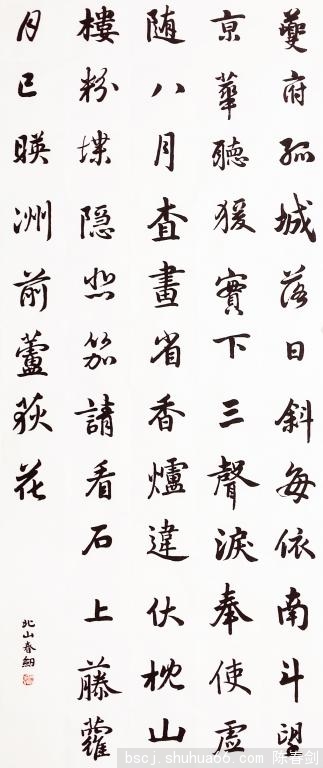 夔府孤城落日斜每依南斗望
京華聽猨實下三聲淚奉使虛
随八月查畫省香爐違伏枕山
樓粉堞隐悲笳請看石上藤蘿
月已暎洲前蘆荻花
北山春釰
bscj.shuhua66.com 陈春剑